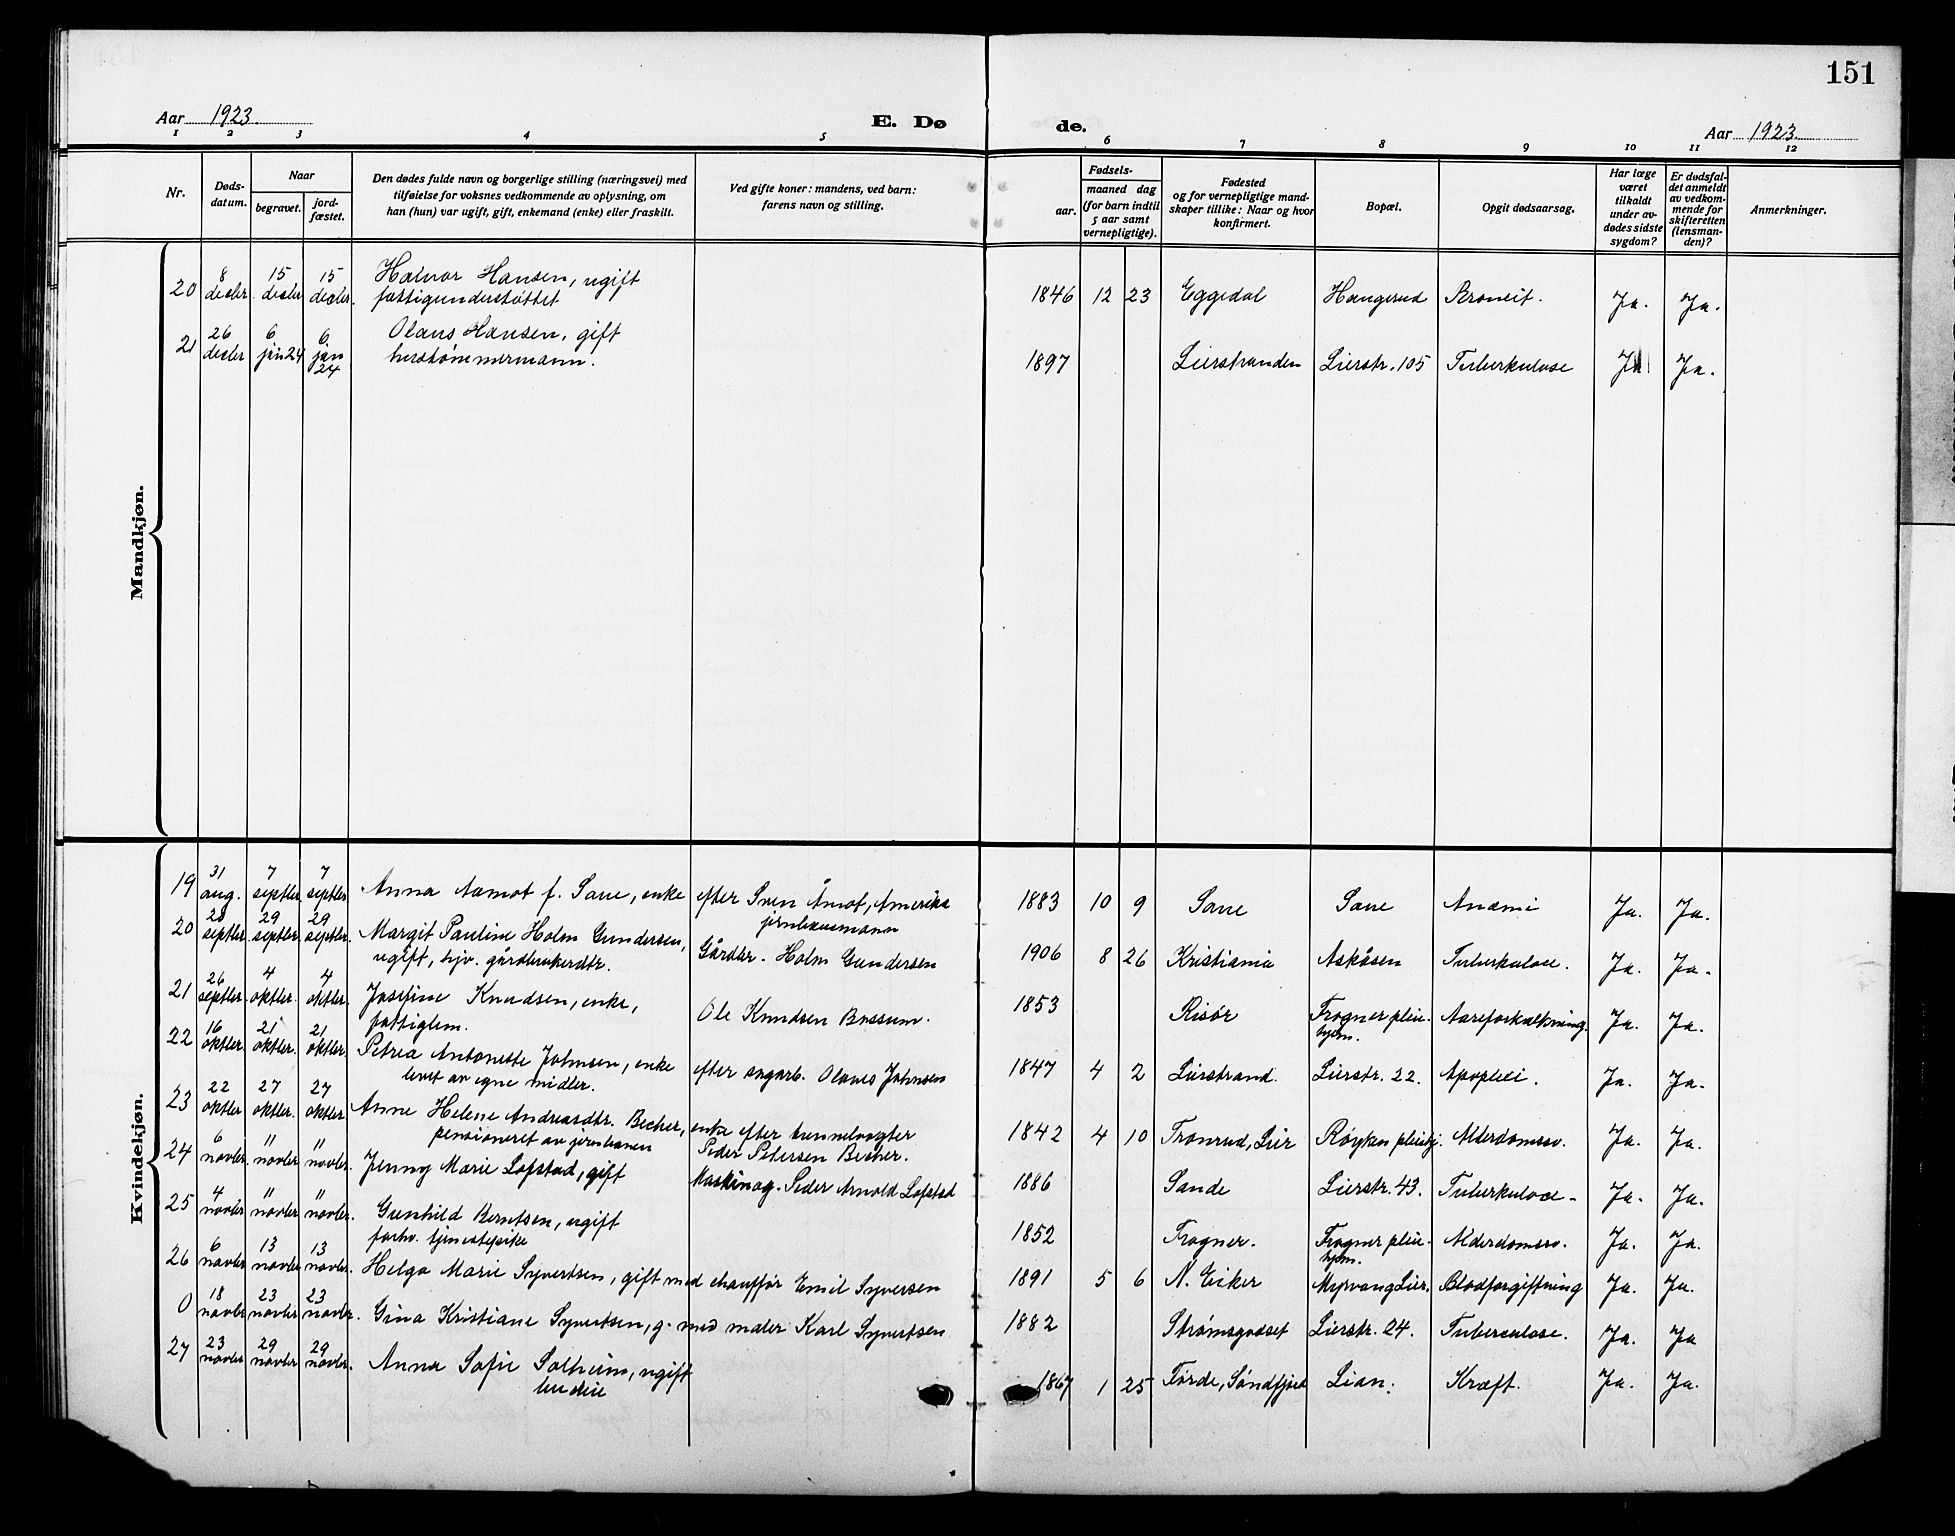 151
Aar 1923.
E. Dø
de.
Aar 1923.
1 2 3 4 5 6 7 8 9 10 11 12
Nr.
Døds-
datum.
Naar
begravet.
jord-
fæstet.
Den dødes fulde navn og borgerlige stilling (næringsvei) med
tilføielse for voksnes vedkommende av oplysning, om
han (hun) var ugift, gift, enkemand (enke) eller fraskilt.
Ved gifte koner: mandens, ved barn:
farens navn og stilling.
Fødsels-
aar.
maaned dag
(for barn indtil
5 aar samt
vernepligtige).
Fødested
og for vernepligtige mand-
skaper tillike: Naar og hvor
konfirmert.
Bopæl.
Opgit dødsaarsag.
Har læge
været
tilkaldt
under av-
dødes sidste
sygdom?
Er dødsfal-
det anmeldt
av vedkom-
mende for
skifteretten
(lensman-
den)?
Anmerkninger.
Mandkjøn.
20 8 decbr. 15 decbr. 15 decbr. Halvor Hansen, ugift
fattigunderstøttet
1846 12 23 Eggedal Haugerud Bronkit. Ja. Ja.
21 26 decbr 6 jan 24 6. jan 24 Olaus Hansen, gift
hustømmermann.
1897 Lierstranden Lierstr. 105 Tuberkulose Ja Ja.
Kvindekjøn.
19 31 aug. 7 septbr. 7 septbr. Anna Aamot f. Saue, enke efter Sven Åmot, Amerika
1883 10 9 Saue Saue Anæmi Ja. Ja.
20 20 septbr. 29 septbr. 29 septbr. Margit Pauline Holm Gundersen,
ugift, hjv. gårdbrukerdtr. Gårdbr. Holm Gundersen
1906 8 26 Kristiania Askåsen Tuberkulose. Ja. Ja.
21 26 septbr. 4 oktbr. 4 oktbr. Josefine Knudsen, enke,
fattiglem. Ole Knudsen Bossum.
1853 Risør Frogner pleie-
hjem. Aareforkalkning. Ja. Ja.
22 16 oktbr. 21 oktbr. 21 oktbr. Petrea Antonette Johnsen, enke efter sagarb. Olaves Johnsen
levet av egne midler.
1847 4 2 Lierstrand. Lierstr. 22. Apoplexi. Ja. Ja.
23 22 oktbr. 27 oktbr. 27 oktbr. Anne Helene Andreasdtr. Becher, enke efter tunnelvogter
pensioneret av jernbanen Peder Petersen Becher.
1842 4 10 Tronrud, Lier Røyken pleiehj. Alderdomssv. Ja. Ja.
24 6 novbr. " novbr. " novbr. Jenny Marie Lofstad, gift Maskinog. Peder Arnold Lofstad
1886 Sande Lierstr. 43. Tuberkulose Ja. Ja.
25 4 novbr " novbr " novbr. Gunhild Berntsen, ugift
forhv. tjenestepike
1852 Frogner. Frogner pleie-
hjem. Alderdomssv. Ja. Ja.
26 6 novbr 13 novbr 13 novbr. Helga Marie Syvertsen, gift med chauffør Emil Syversen
1891 5 6 N. Eiker Myrvang Lier. Blodforgiftning Ja. Ja.
0 18 novbr 23 novbr 23 novbr. Gina Kristiane Syvertsen, g. med maler Karl Syvertsen
1882 Strømsgodset Lierstr. 24. Tuberculose. Ja. Ja
27 23 novbr 29 novbr 29 novbr. Anna Sofie Solheim, ugift
1867 1 25 Førde, Søndfjord Lian. Kræft. Ja. Ja.